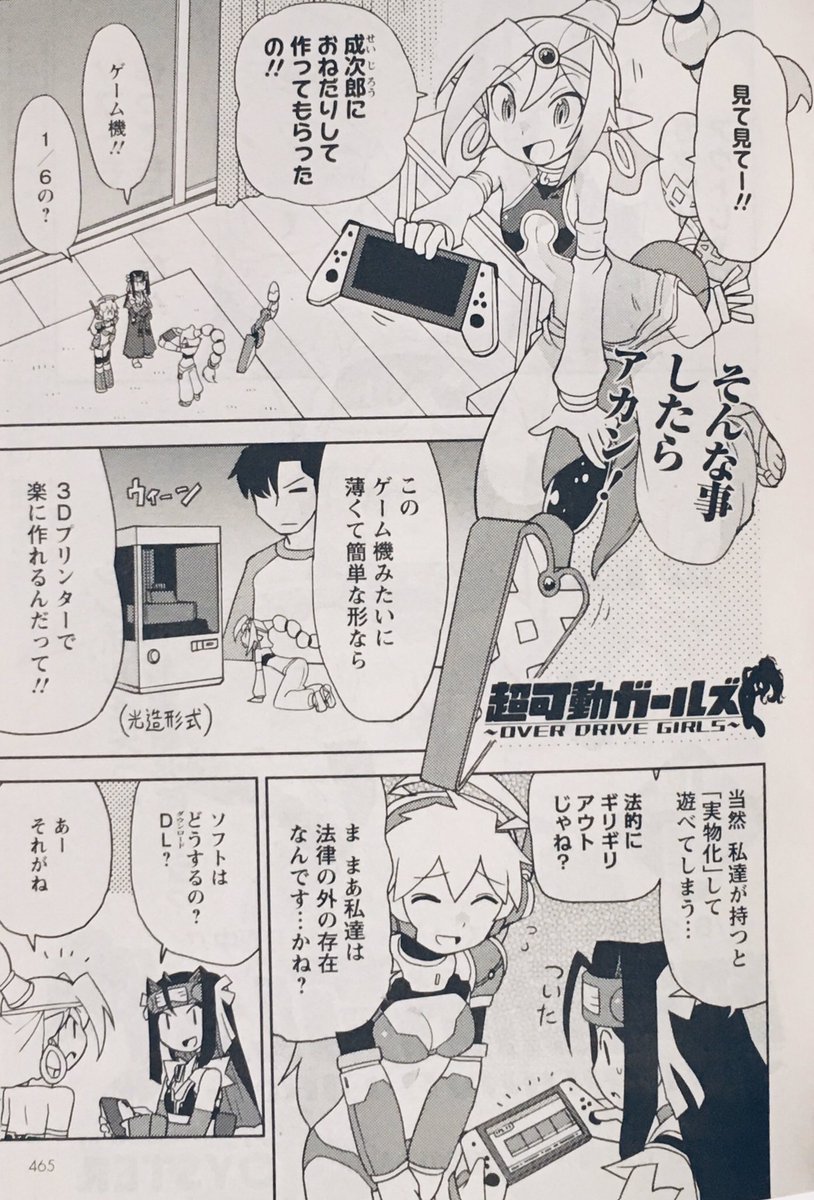 見て見てー!!
成次郎に
せいじろう
おねだりして
作ってもらった
の!!
ゲーム機!!
1/6の?
そんな事
したら
アカン!
この
ゲーム機みたいに
薄くて簡単な形なら
ウィーン
3Dプリンターで
楽に作れるんだって!!
(光造形式)
超可動ガールズ
~OVER DRIVE GIRLS~
当然 私達が持つと
「実物化」して
遊べてしまう…
法的に
ギリギリ
アウト
じゃね?
ついた
ま まあ私達は
法律の外の存在
なんです…かね?
ソフトは
どうするの?
DL?
ダウンロード
あー
それがね
465